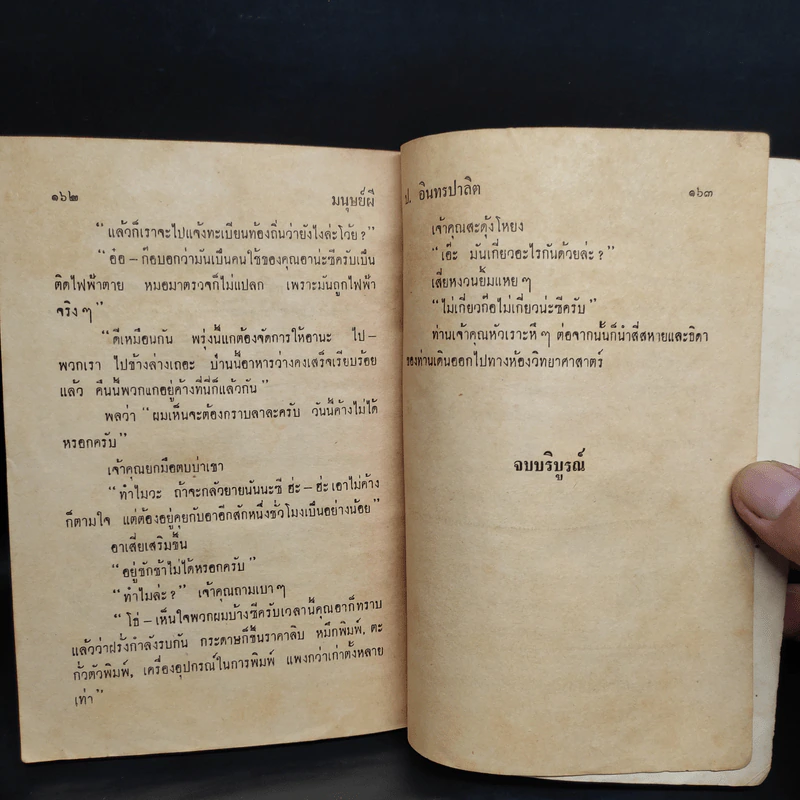 ๑๖๒ มนุษย์ผี
“แล้วก็เราจะไปแจ้งทะเบียนท้องถิ่นว่ายังไงล่ะโว้ย?”
“อ๋อ – ก๊อบอกว่ามันเป็นคนใช้ของคุณอาน่ะซีครับเป็น
ติดไฟฟ้าตาย หมอมาตรวจก็ไม่แปลก เพราะมันถูกไฟฟ้า
จริง ๆ”
“ดีเหมือนกัน พรุ่งนี้แกต้องจัดการให้อานะ ไป–
พวกเรา ไปข้างล่างเถอะ ป่านนี้อาหารว่างคงเสร็จเรียบร้อย
แล้ว คืนนี้พวกแกอยู่ค้างที่นี่ก็แล้วกัน”
พลว่า “ผมเห็นจะต้องกราบลาละครับ วันนี้ค้างไม่ได้
หรอกครับ”
เจ้าคุณยกมือตบบ่าเขา
“ทำไมวะ ถ้าจะกลัวยายนันนะซี ฮ่ะ – ฮ่ะ เอาไม่ค้าง
ก็ตามใจ แต่ต้องอยู่คุยกับอาอีกสักหนึ่งชั่วโมงเป็นอย่างน้อย”
อาเสี่ยเสริมขึ้น
“อยู่ชักช้าไม่ได้หรอกครับ”
“ทำไมล่ะ?” เจ้าคุณถามเบา ๆ
“โธ่ – เห็นใจพวกผมบ้างซีครับเวลานี้คุณอาก็ทราบ
แล้วว่าฝรั่งกำลังรบกัน กระดาษก็ขึ้นราคาลิบ หมึกพิมพ์, ตะ
กั่วตัวพิมพ์, เครื่องอุปกรณ์ในการพิมพ์ แพงกว่าเก่าตั้งหลาย
เท่า”
ป. อินทรปาลิต ๑๖๓
เจ้าคุณสะดุ้งโหยง
“เอ๊ะ มันเกี่ยวอะไรกันด้วยล่ะ?”
เสี่ยหงวนยิ้มแหย ๆ
“ไม่เกี่ยวก๊อไม่เกี่ยวน่ะซีครับ”
ท่านเจ้าคุณหัวเราะหึ ๆ ต่อจากนั้นก็นำสี่สหายและธิดา
ของท่านเดินออกไปทางห้องวิทยาศาสตร์
จบบริบูรณ์